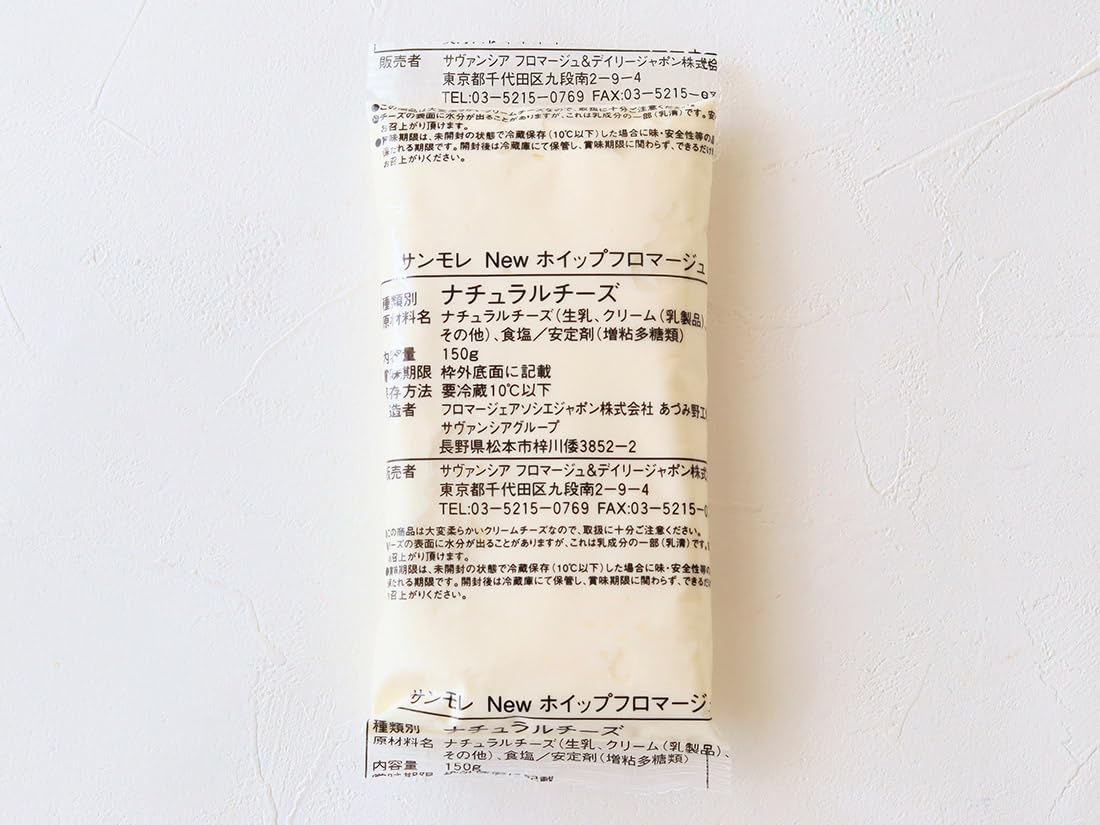 販売者 サヴァンシア フロマージュ&デイリージャポン株式会
東京都千代田区九段南2-9-4
TEL:03-5215-0769 FAX:03-5215-
チーズの表面に水分が出ることがありますが、これは乳成分の一部(乳清)です。安
お召上がり頂けます。
●賞味期限は、未開封の状態で冷蔵保存(10℃以下)した場合に味・安全性等の
保たれる期限です。開封後は冷蔵庫にて保管し、賞味期限に関わらず、できるだけ
お召上がりください。
サンモレ New ホイップフロマージュ
種類別 ナチュラルチーズ
原材料名 ナチュラルチーズ(生乳、クリーム(乳製品)、
その他)、食塩/安定剤(増粘多糖類)
内容量 150g
賞味期限 枠外底面に記載
保存方法 要冷蔵10℃以下
造者 フロマージェアソシエジャポン株式会社 あづみ野工
サヴァンシアグループ
長野県松本市梓川倭3852-2
販売者 サヴァンシア フロマージュ&デイリージャポン株式
東京都千代田区九段南2-9-4
TEL:03-5215-0769 FAX:03-5215-
この商品は大変柔らかいクリームチーズなので、取扱に十分ご注意ください。
チーズの表面に水分が出ることがありますが、これは乳成分の一部(乳清)です。
お召上がり頂けます。
●賞味期限は、未開封の状態で冷蔵保存(10℃以下)した場合に味・安全性等の
保たれる期限です。開封後は冷蔵庫にて保管し、賞味期限に関わらず、できるだけ
お召上がりください。
サンモレ New ホイップフロマージュ
種類別 ナチュラルチーズ
原材料名 ナチュラルチーズ(生乳、クリーム(乳製品)、
その他)、食塩/安定剤(増粘多糖類)
内容量 150g